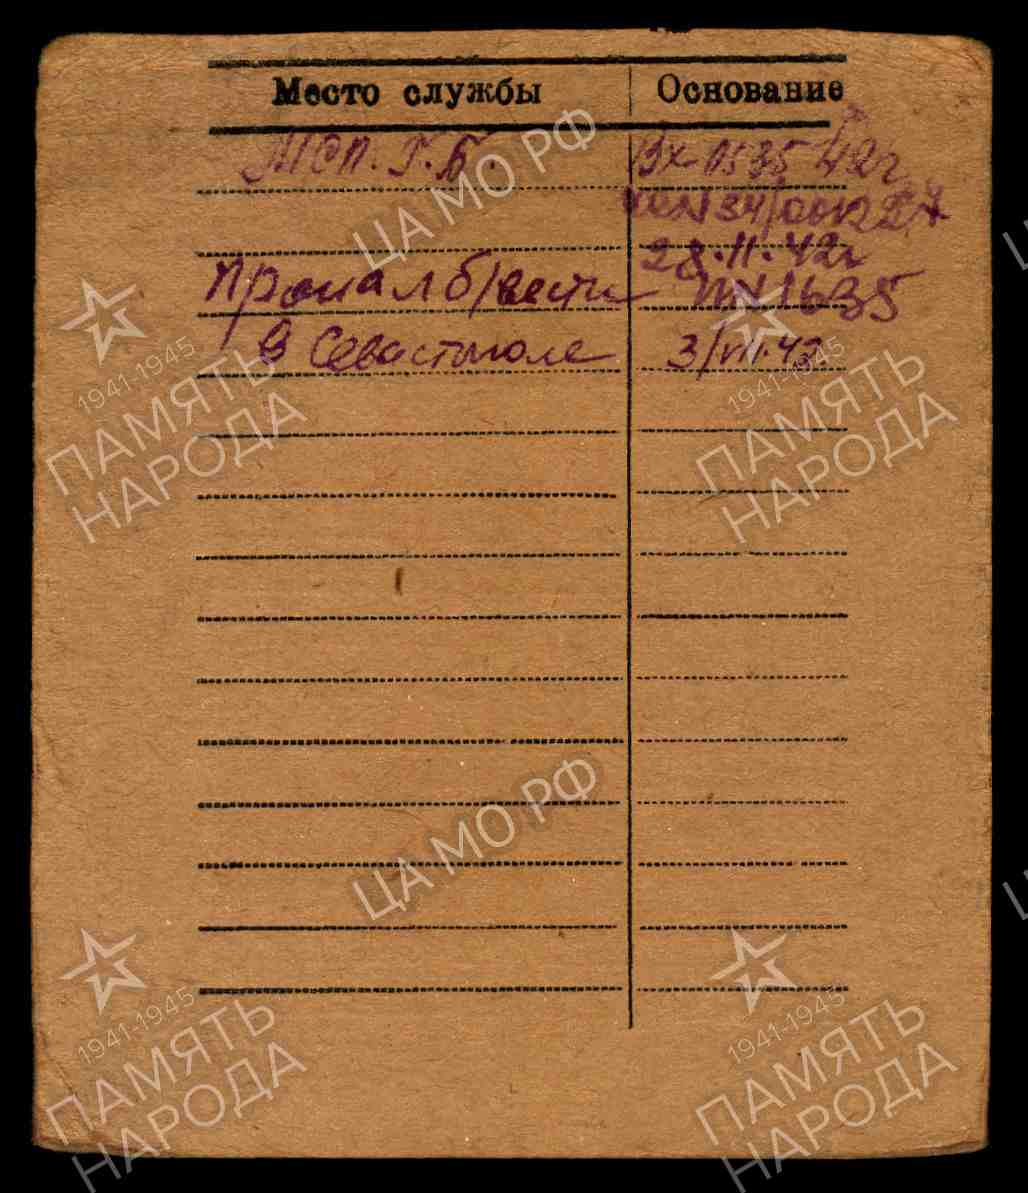 Место службы Основание
МСП. Г. Б. Вх 0535 42г
28.11.42г
Пропал б/вести №1635
в Севастополе 3/VII.42
ЦА МО РФ
1941-1945
ПАМЯТЬ
НАРОДА
1941-1945
ПАМЯТЬ
НАРОДА
ЦА МО РФ
1941-1945
ПАМЯТЬ
НАРОДА
1941-1945
ПАМЯТЬ
НАРОДА